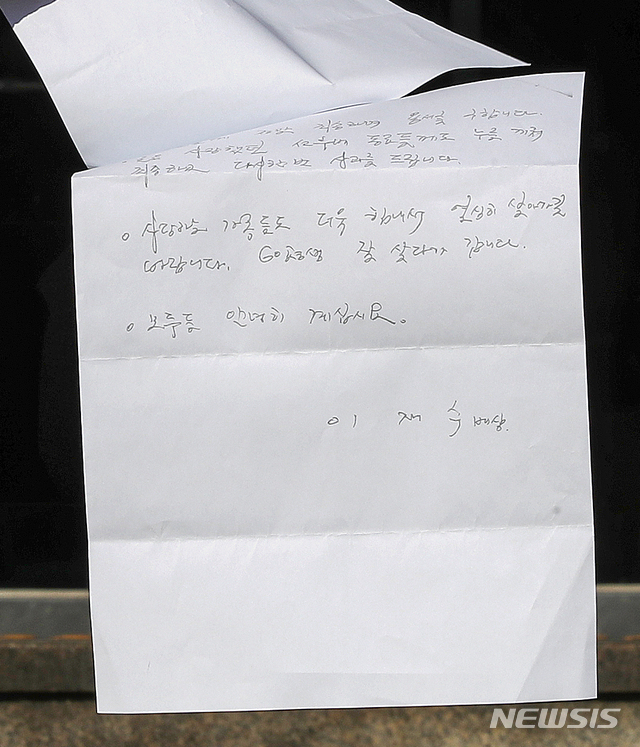 죄송하며 용서를 구합니다.
사랑했던 선후배 동료들께도 누를 끼쳐
죄송하고 다시한번 사과를 드립니다.
o 사랑하는 가족들도 더욱 힘내서 열심히 살아가길
바랍니다. 60평생 잘 살다가 갑니다.
o 모두들 안녕히 계십시요.
이 재 수 배상.
NEWSIS